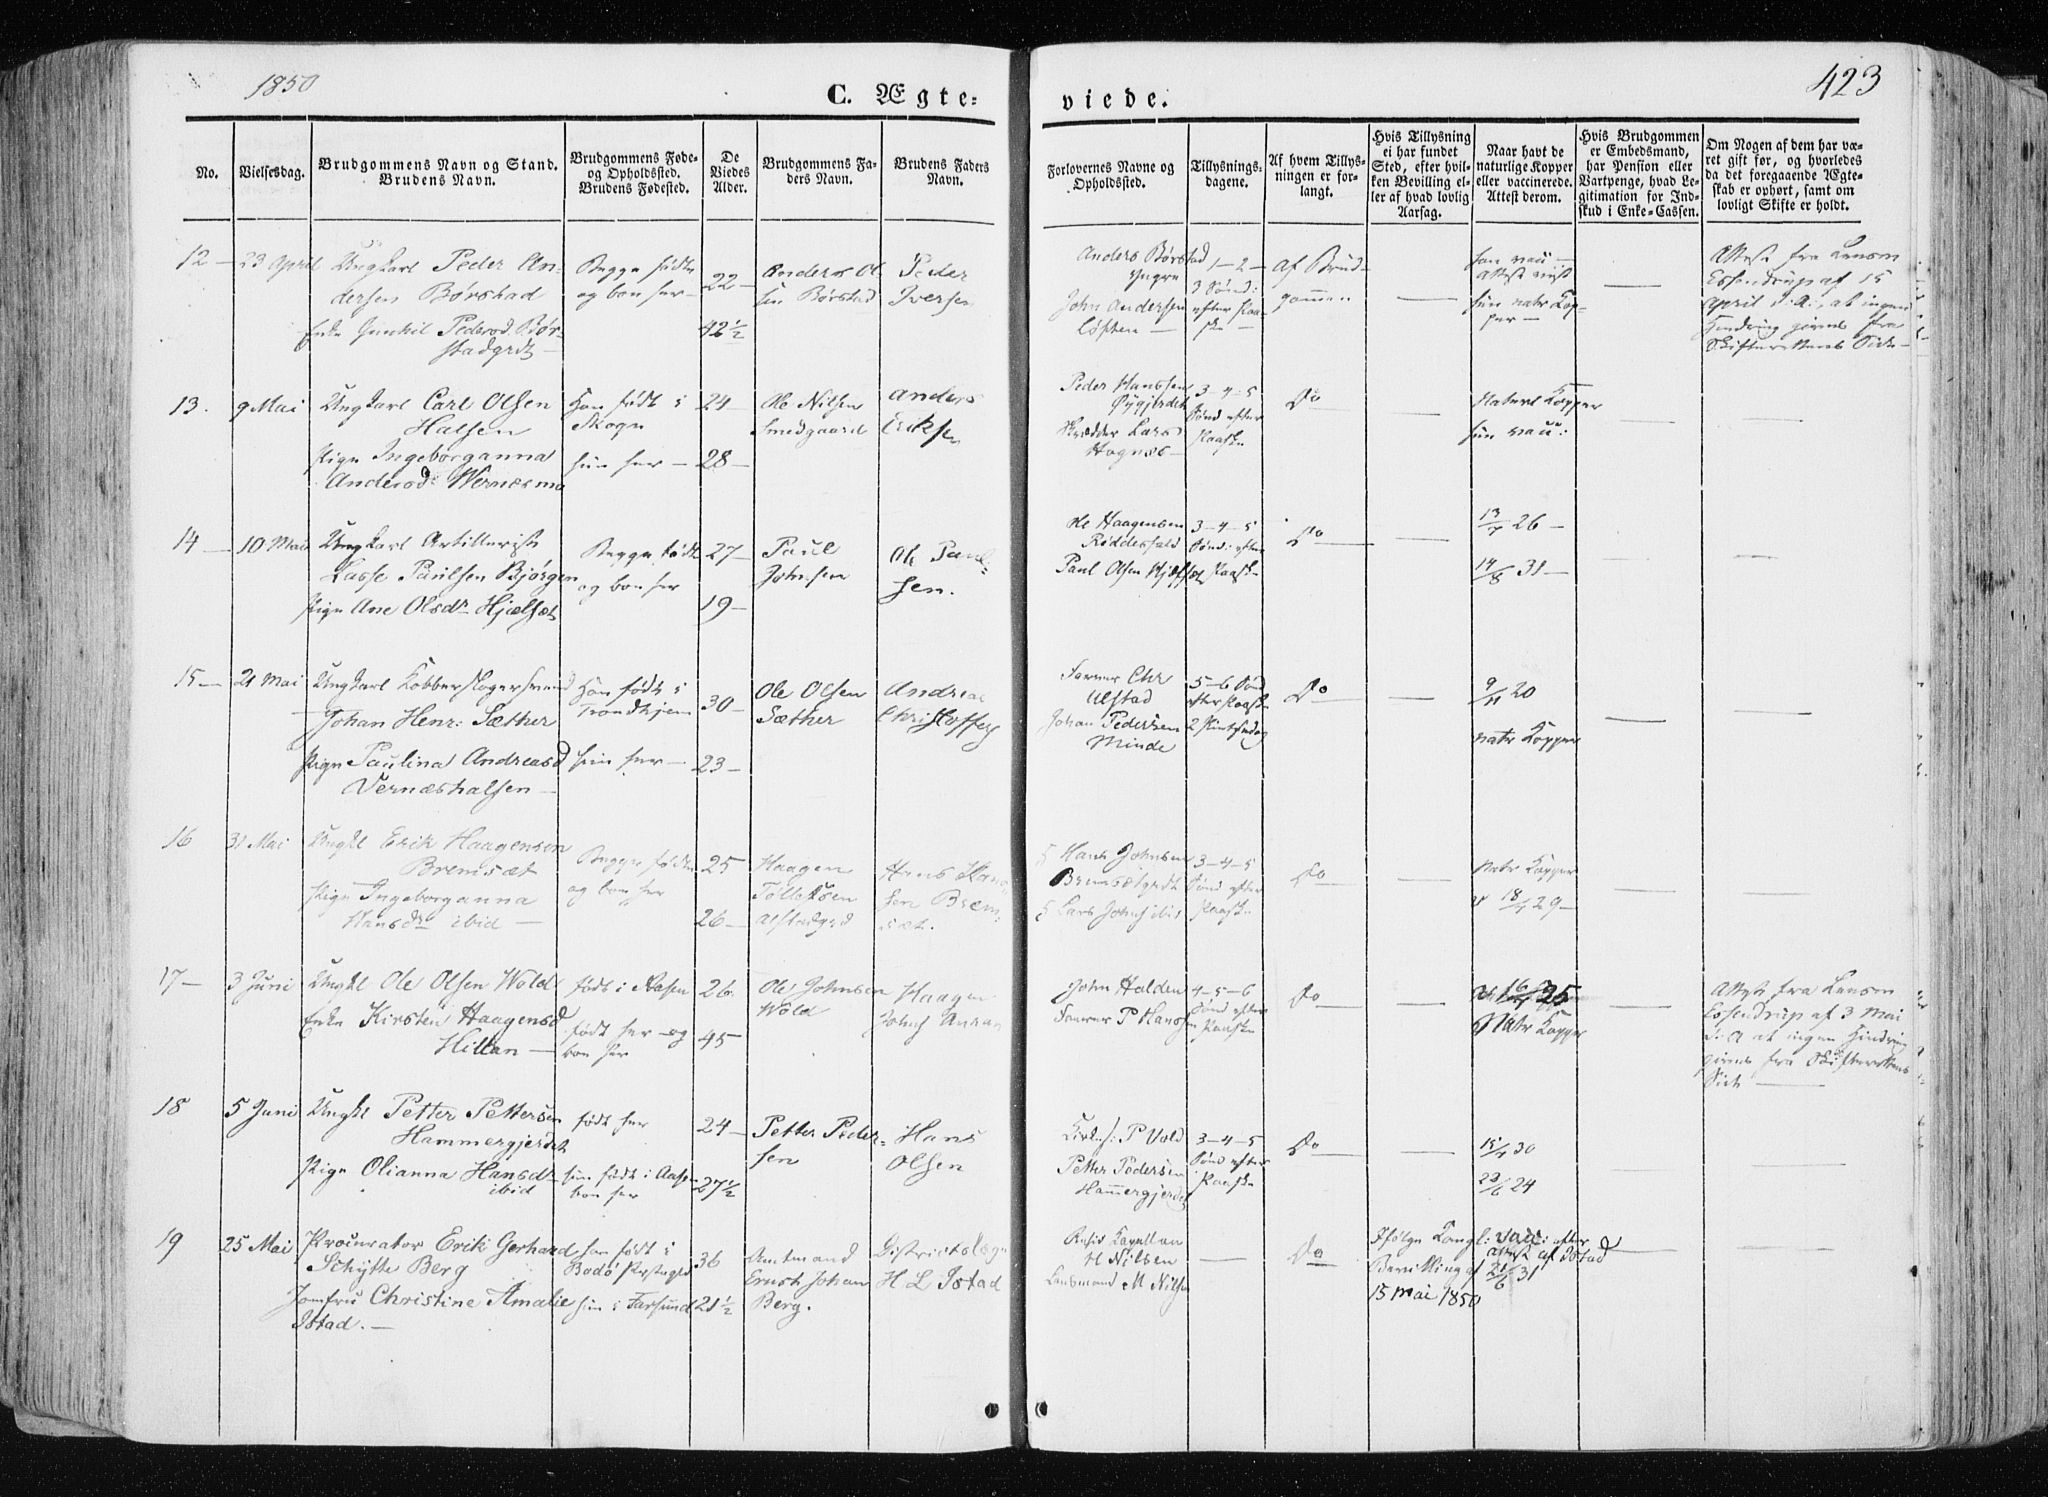 1850
C. Ægte-
viede.
423
No.
Vielsesdag.
Brudgommens Navn og Stand.
Brudens Navn.
Brudgommens Føde-
og Opholdssted.
Brudens Fødested.
De
Viedes
Alder.
Brudgommens Fa-
ders Navn.
Brudens Faders
Navn.
Forlovernes Navne og
Opholdssted.
Tillysnings-
dagene.
Af hvem Tillys-
ningen er for-
langt.
Hvis Tillysning
ei har fundet
Sted, efter hvil-
ken Bevilling el-
ler af hvad lovlig
Aarsag.
Naar havt de
naturlige Kopper
eller vaccinerede.
Attest derom.
Hvis Brudgommen
er Embedsmand,
har Pension eller
Vartpenge, hvad Le-
gitimation for Ind-
skud i Enke-Cassen.
Om Nogen af dem har væ-
ret gift før, og hvorledes
da det foregaaende Ægte-
skab er ophørt, samt om
lovligt Skifte er holdt.
12 — 23 April
Ungkarl Peder An-
dersen Børstad
Enke Gunhil Pedersd Bør-
stadgrdt —
Begge fødte
og boe her —
22 —
42 ½
Anders Ol
sen Børstad
Peder
Iversen
Anders Børstad
yngre
John Andersen
Løften —
1 — 2 —
3 Sønd:
efter Paa-
ske —
Af Brud-
gommen
han vac —
Attest vist
hun natr Kop-
per —
Attest fra Lensm
Essendrup af 15
April d. A., at ingen
Hindring gives fra
Skifterettens Side —
13. 9 Mai
Ungkarl Carl Olsen
Halsen
Pige Ingeborganna
Andersd. Wernæsmo
Han født i
Skogn
hun her —
24 —
28 —
Ole Nilsen
Smedgaard
Anders
Eriksen
Peder Hanssen
Øygjerdet
Skrædder Lars
Hognes —
3 — 4 — 5
Sønd efter
Paaske
Do
Naturl Kopper
hun vac:
14 — 10 Mai
Ungkarl Artillerist
Lasse Paulsen Bjørgen
Pige Ane Olsdr Hjelset
Begge fødte
og boe her
27 —
19 —
Paul
Johnsen
Ole Paul-
sen.
Ole Haagensen
Røddesfald
Paul Olsen Hjelset
3 — 4 — 5
Sønd: efter
Paaske
Do
13/7 26 —
14/8 31 —
15 — 21 Mai
Ungkarl Kobberslagersvend
Johan Henr: Sæther
Pige Paulina Andreasd
Vernæshalsen —
Han født i
Trondhjem
hun her —
30 —
23 —
Ole Olsen
Sæther
Andreas
Christoffers
Farver Chr
Ulstad
Johan Pedersen
Minde
5 — 6 Sønd
efter Paaske
2 Pintsedag
Do
9/11 20
natr Kopper
16 31 Mai
Ungkl Erik Haagensen
Bremsæt
Pige Ingeborganna
Hansdr ibid —
Begge fødte
og boe her
25
26 —
Haagen
Tollefsen
Alstadgrd
Hans Han-
sen Brem-
sæt.
Hans Johnsen
Bremsætgrdt
Lars Johns ibid
3 — 4 — 5
Sønd efter
Paaske
Do
Natr Kopper
v 18/7 29 —
17 — 3 Juni
Ungkl Ole Olsen Wold
Enke Kirsten Haagensd
Hillan —
født i Aasen
født her og
boe her
26.
45
Ole Johnsen
Wold
Haagen
Johns
John Halden
Farver P Hanssen
4 — 5 — 6
Sønd efter
Paaske
Do
16/7 25
Natr Kopper
Attest fra Lensm
Essendrup af 3 Mai
d. A at ingen Hindring
gives fra Skifterettens
Side —
18 5 Juni
Ungkl Petter Pettersen
Hammergjerdet
Pige Olianna Hansdr
ibid
født her
hun født i Aasen
boe her
24 —
27 ½
Petter Peder-
sen
Hans
Olsen
Kirkes: P Vold
Petter Pedersen
Hammergjerdet
3 — 4 — 5
Sønd efter
Paaske
Do
15/7 30
23/6 24
19 25 Mai
Procurator Erik Gerhard
Schytte Berg
Jomfru Christine Amalie
Istad. —
han født i
Bodø Prestegjeld
hun i Farsund
36
21 ½
Amtmand
Ernst Johan
Berg.
Districtslæge
H L Istad
Resid Capellan
H Nilsen
Lensmand M Nilsen
Do
Ifølge Kongl:
Bevilling af
15 Mai 1850
vacc: efter
Attest af Istad
21/6 31